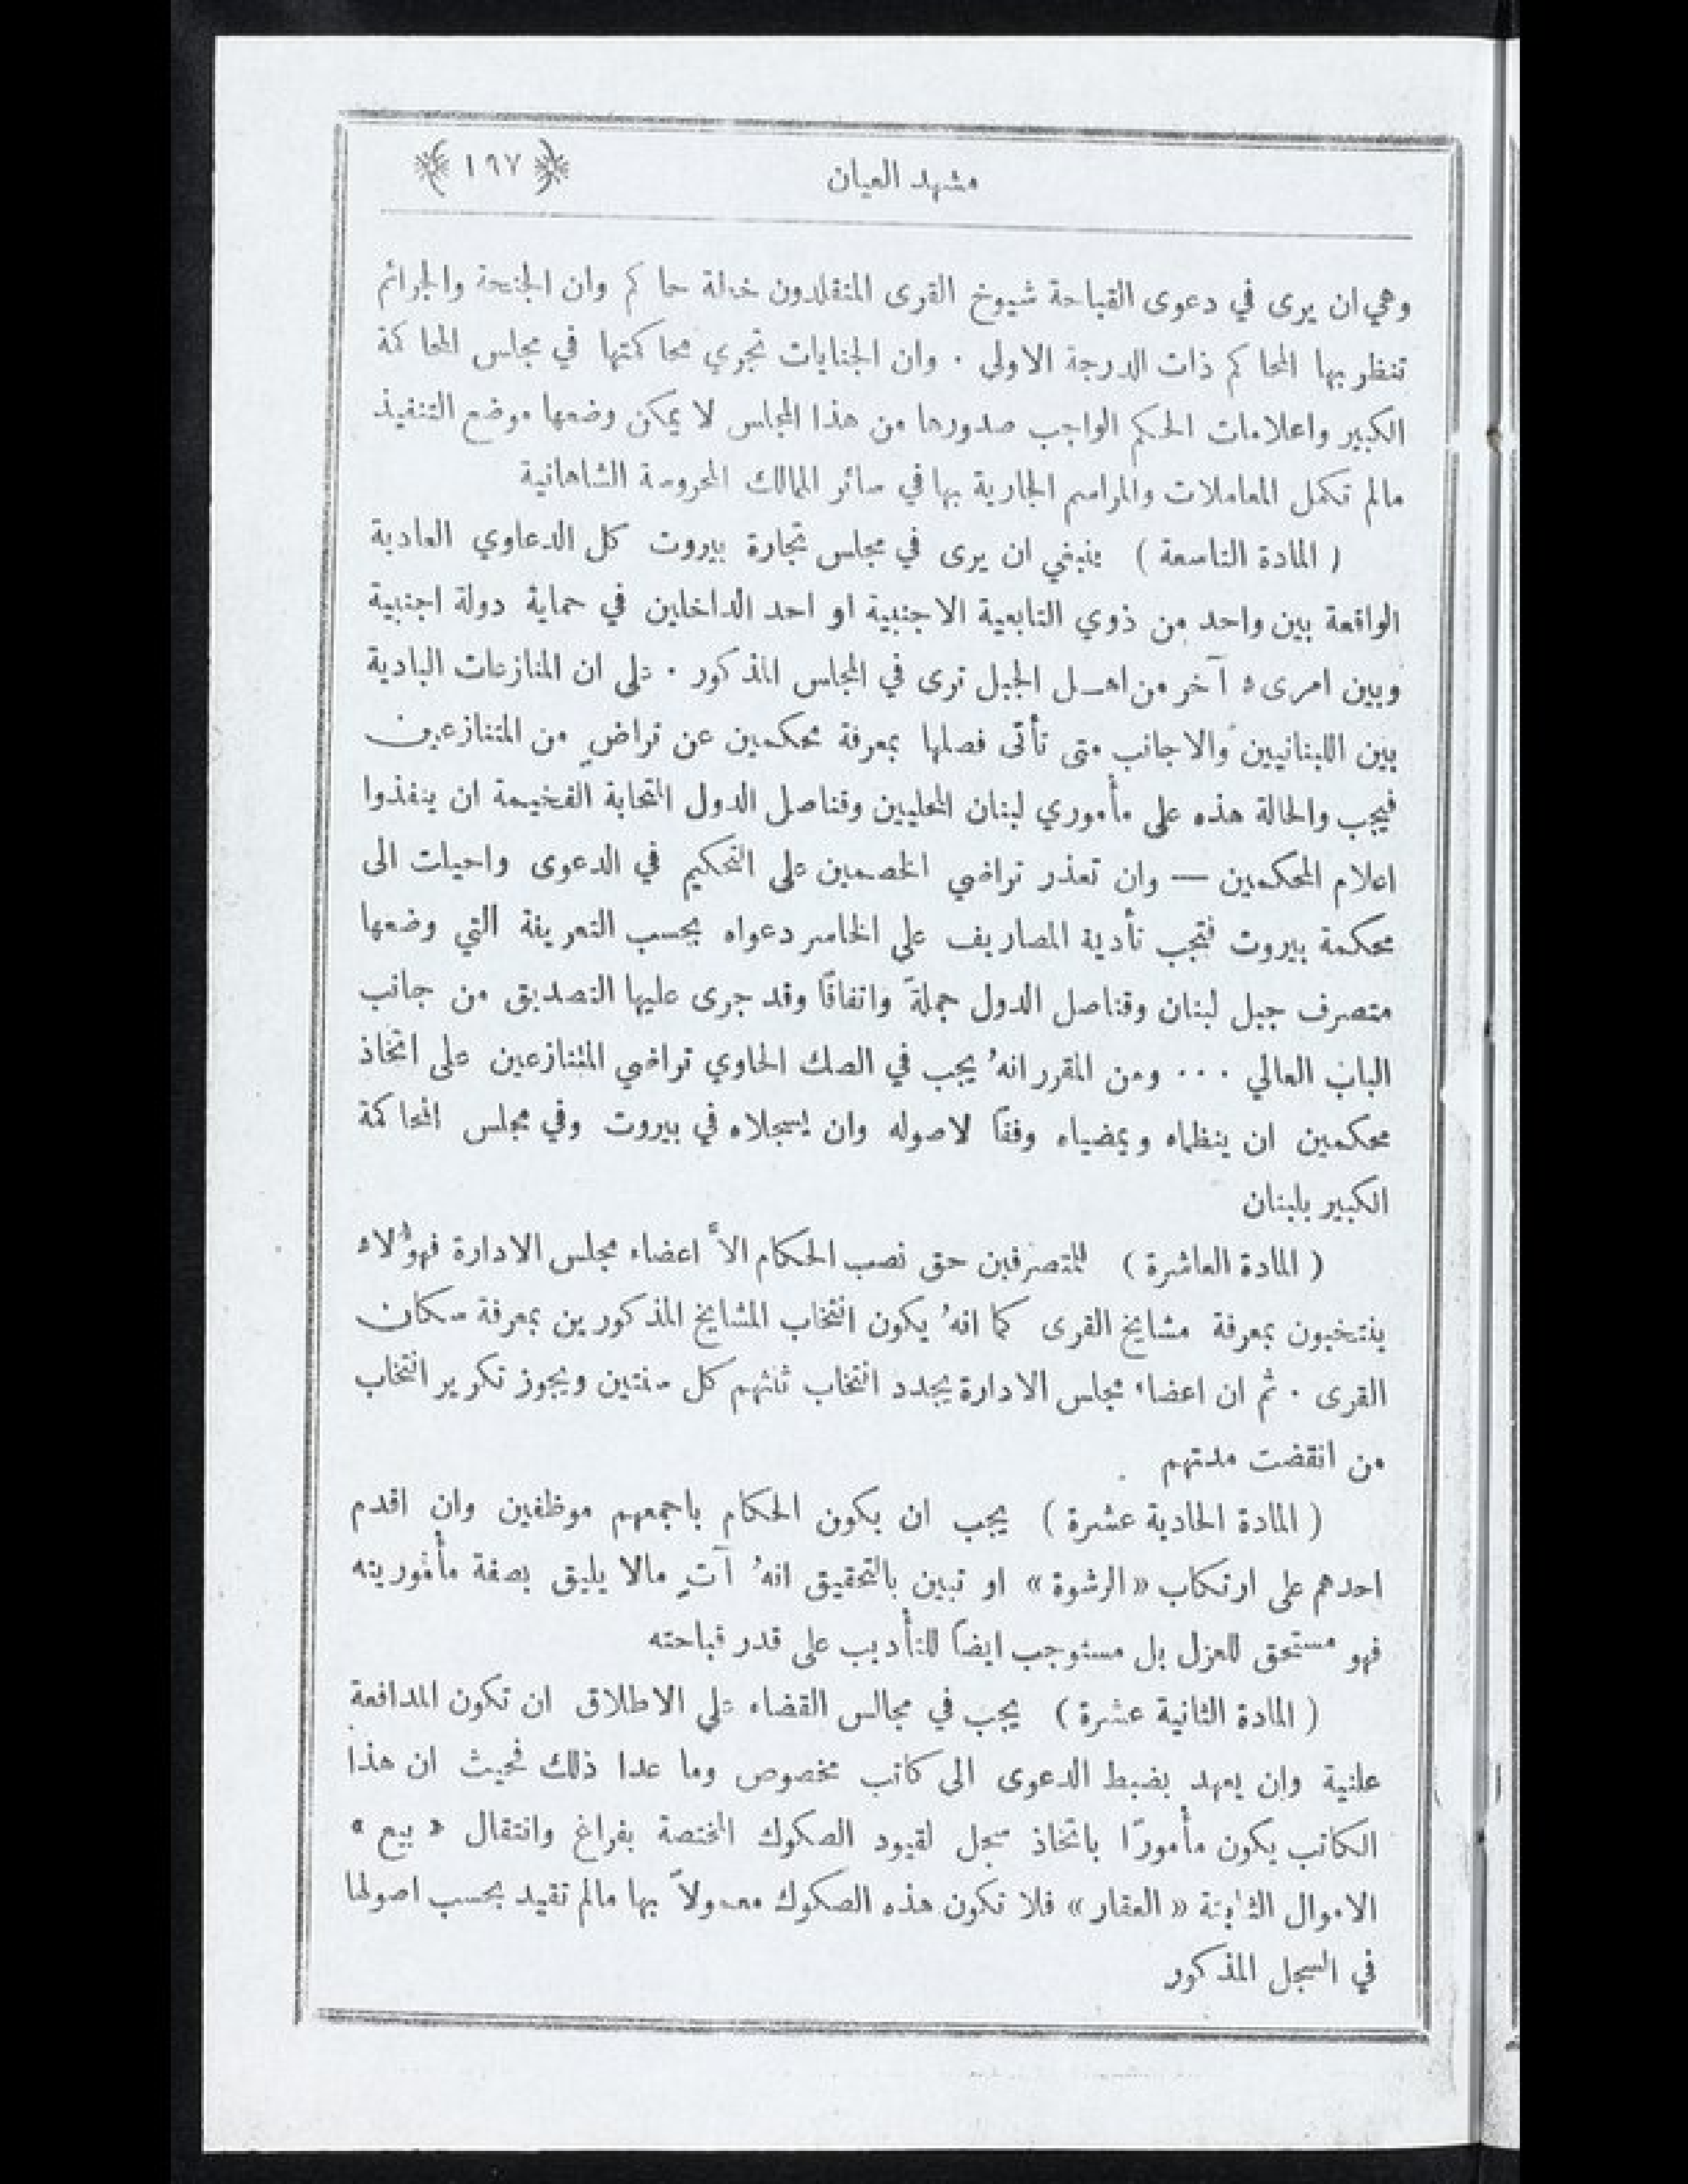 مشهد العيان
﴿ ١٩٧ ﴾
وهي ان يرى في دعوى القباحة شيوخ القرى المتقلدون خطة حاكم وان الجنحة والجرائم
تنظر بها المحاكم ذات الدرجة الاولى . وان الجنايات تجري محاكمتها في مجلس المحاكمة
الكبير واعلامات الحكم الواجب صدورها من هذا المجلس لا يمكن وضعها موضع التنفيذ
مالم تكمل المعاملات والمراسم الجارية بها في سائر الممالك المحروسة الشاهانية
( المادة التاسعة ) ينبغي ان يرى في مجلس تجارة بيروت كل الدعاوي العادية
الواقعة بين واحد من ذوي التابعية الاجنبية او احد الداخلين في حماية دولة اجنبية
وبين امرىء آخر من اهل الجبل ترى في المجلس المذكور . على ان المنازعات البادية
بين اللبنانيين والاجانب متى تأتى فصلها بمعرفة محكمين عن تراضٍ من المتنازعين
فيجب والحالة هذه على مأموري لبنان المحليين وقناصل الدول المتحابة الفخيمة ان ينفذوا
اعلام المحكمين — وان تعذر تراضي الخصمين على التحكيم في الدعوى واحيلت الى
محكمة بيروت فتجب تأدية المصاريف على الخاسر دعواه بحسب التعريفة التي وضعها
متصرف جبل لبنان وقناصل الدول جملةً واتفاقًا وقد جرى عليها التصديق من جانب
الباب العالي ... ومن المقرر انهُ يجب في الصك الحاوي تراضي المتنازعين على اتخاذ
محكمين ان ينظماه ويمضياه وفقًا لاصوله وان يسجلاه في بيروت وفي مجلس المحاكمة
الكبير بلبنان
( المادة العاشرة ) للمتصرفين حق نصب الحكام الاَّ اعضاء مجلس الادارة فهؤلاء
ينتخبون بمعرفة مشايخ القرى كما انهُ يكون انتخاب المشايخ المذكورين بمعرفة سكان
القرى . ثم ان اعضاء مجلس الادارة يجدد انتخاب ثلثهم كل سنتين ويجوز تكرير انتخاب
من انقضت مدتهم
( المادة الحادية عشرة ) يجب ان يكون الحكام باجمعهم موظفين وان اقدم
احدهم على ارتكاب «الرشوة» او تبين بالتحقيق انهُ آتٍ مالا يليق بصفة مأموريته
فهو مستحق للعزل بل مستوجب ايضًا للتأديب على قدر قباحته
( المادة الثانية عشرة ) يجب في مجالس القضاء على الاطلاق ان تكون المدافعة
علنية وان يعهد بضبط الدعوى الى كاتب مخصوص وما عدا ذلك فحيث ان هذا
الكاتب يكون مأمورًا باتخاذ سجل لقيود الصكوك المختصة بفراغ وانتقال « بيع »
الاموال الثابتة « العقار » فلا تكون هذه الصكوك معمولاً بها مالم تقيد بحسب اصولها
في السجل المذكور